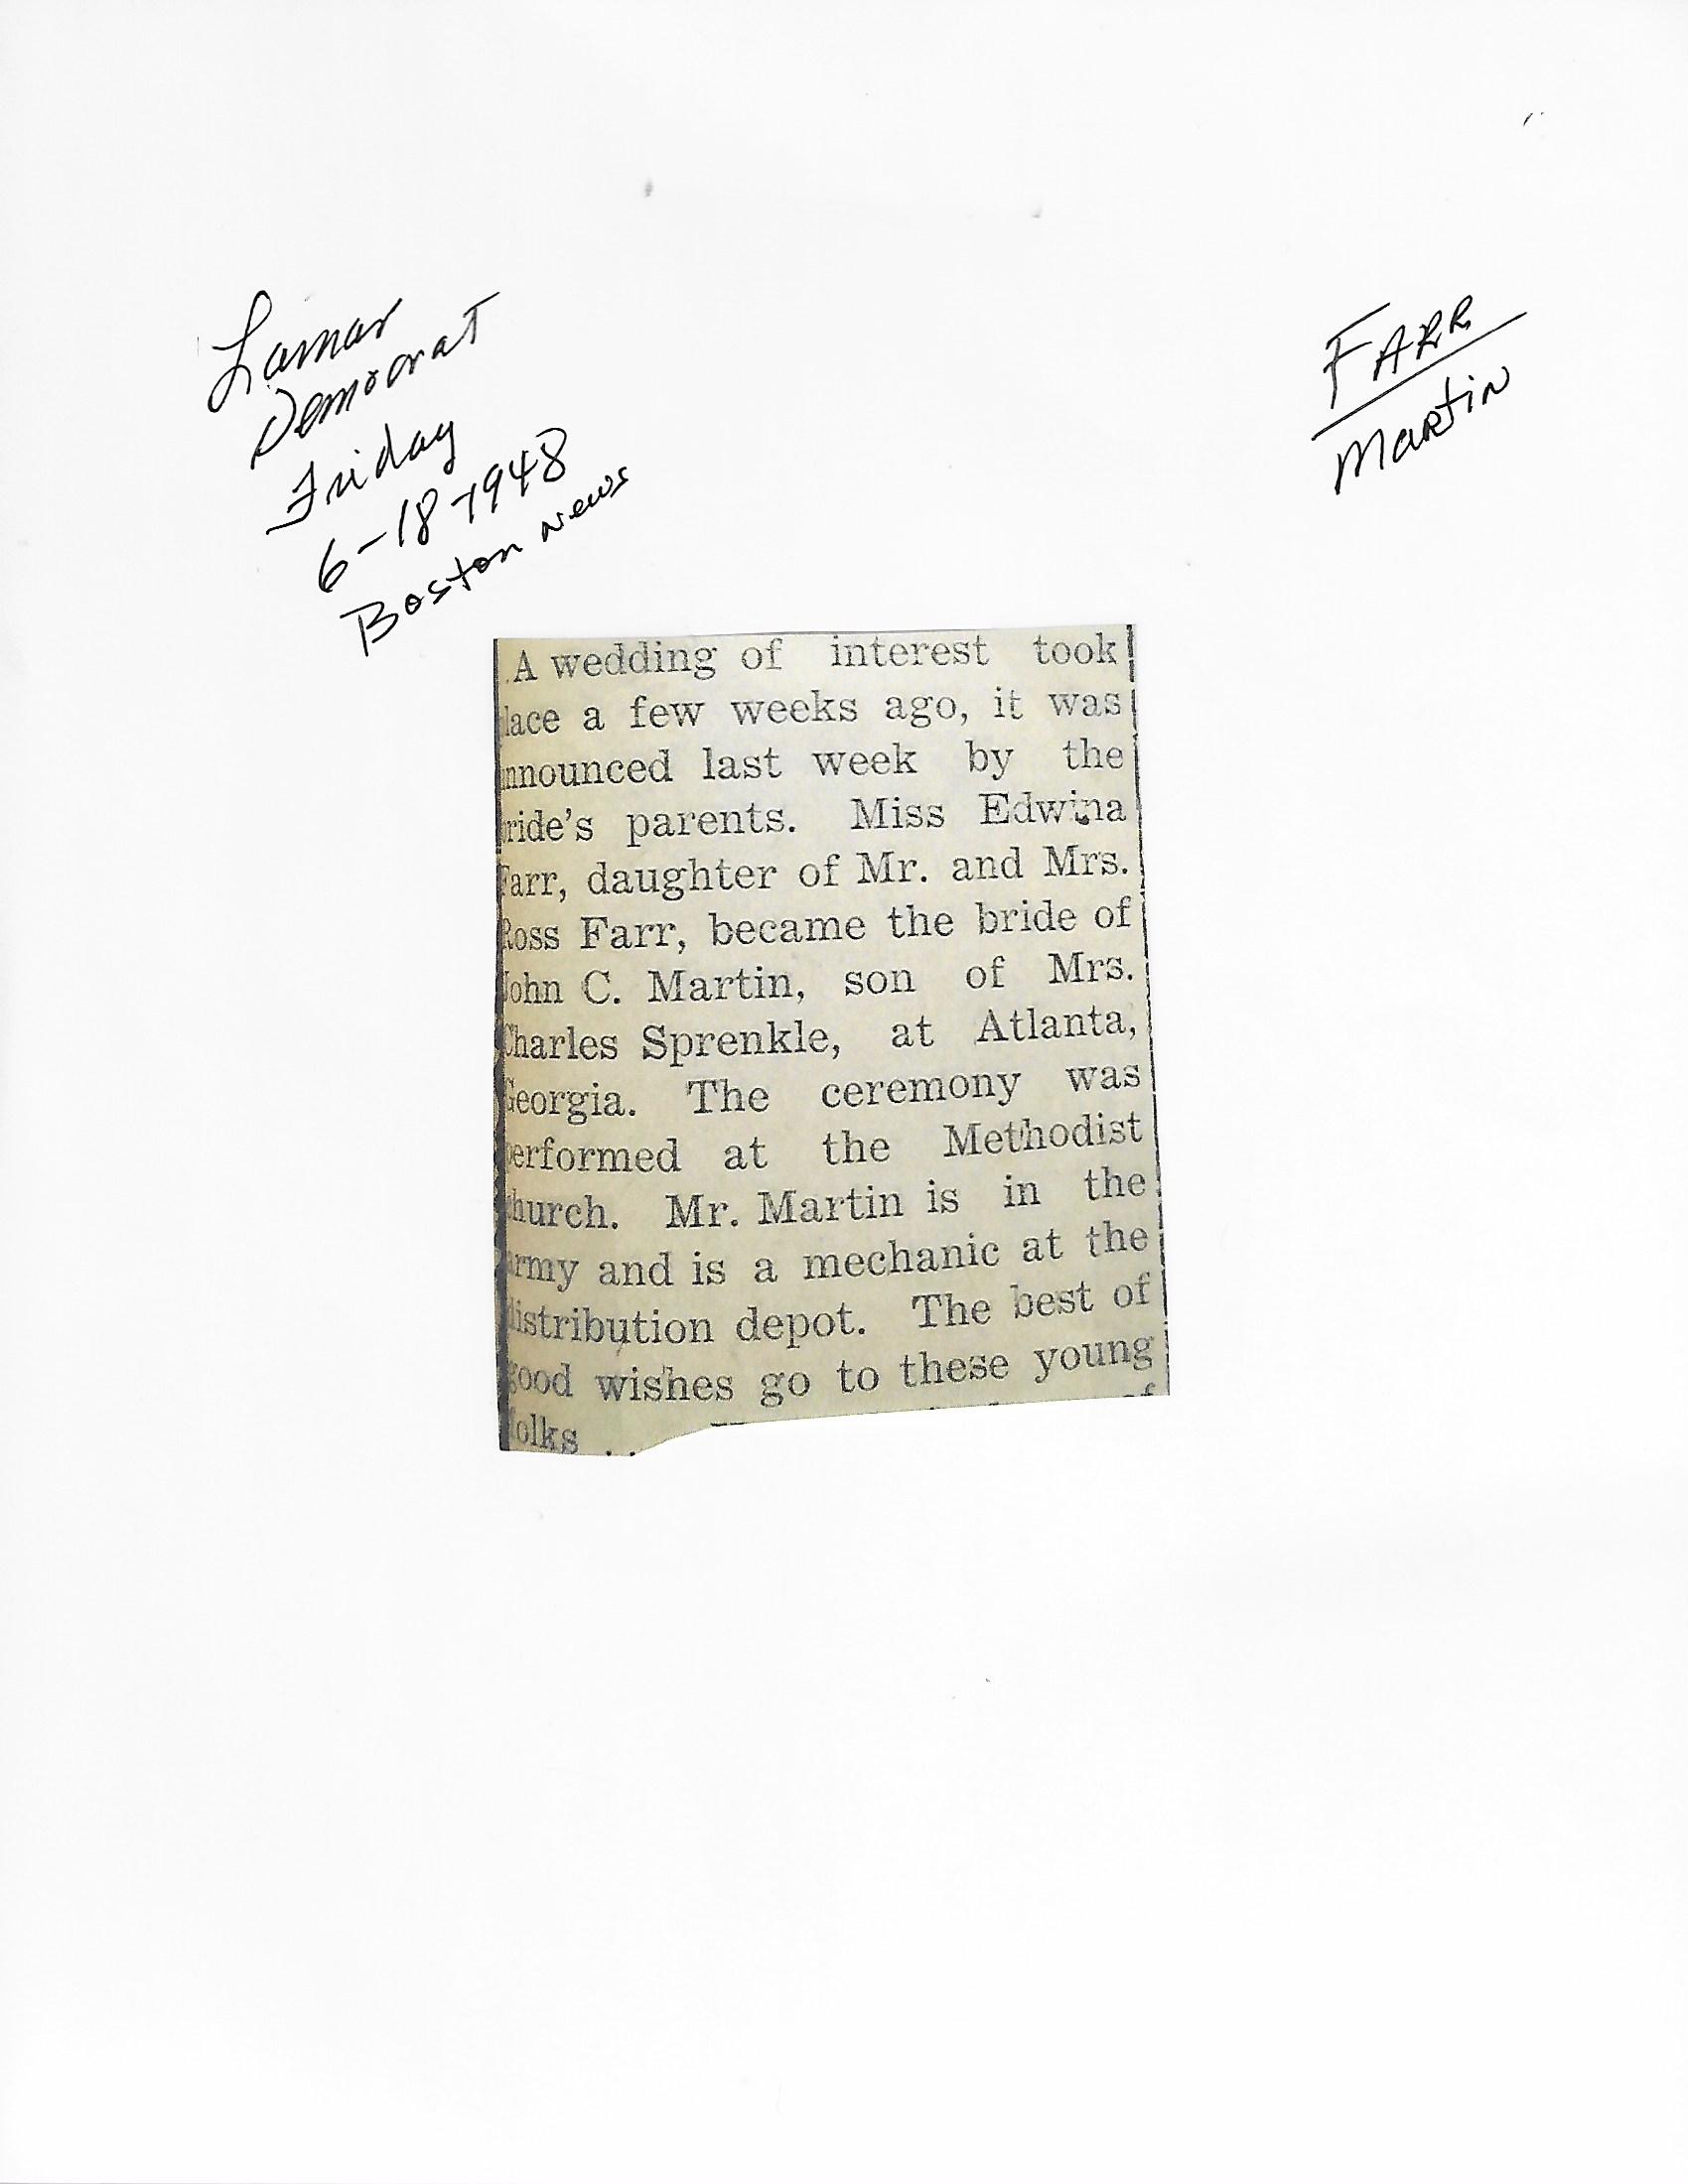 Lamar
Democrat
Friday
6-18-1948
Boston News
FARR
Martin
A wedding of interest took
lace a few weeks ago, it was
nnounced last week by the
ride's parents. Miss Edwina
Farr, daughter of Mr. and Mrs.
Ross Farr, became the bride of
John C. Martin, son of Mrs.
Charles Sprenkle, at Atlanta,
Georgia. The ceremony was
performed at the Methodist
church. Mr. Martin is in the
army and is a mechanic at the
distribution depot. The best of
good wishes go to these young
folks